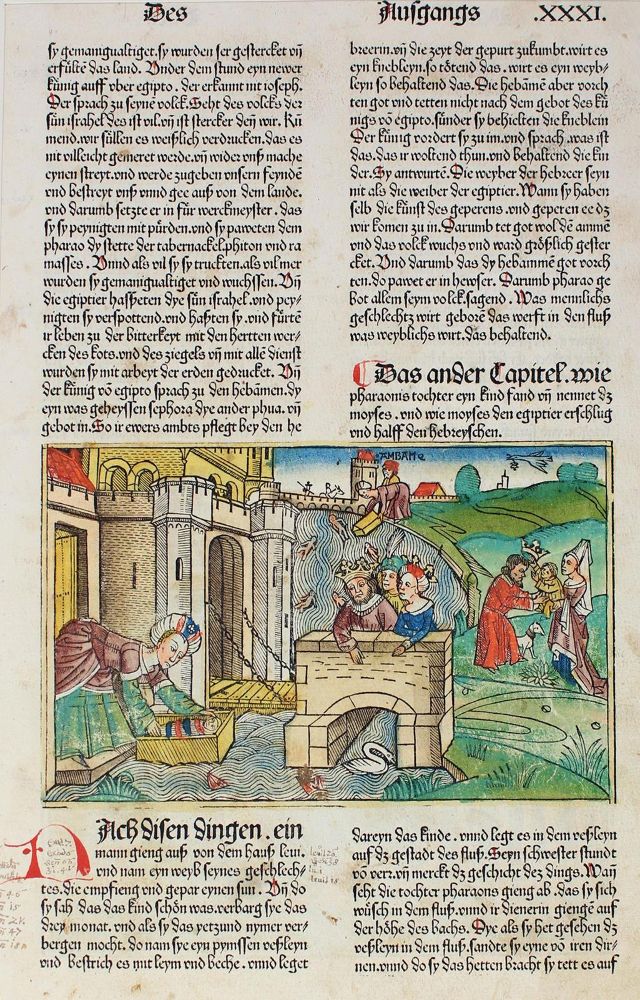 Des Ausgangs .XXXI.
sy gemanigualtiget.sy wurden ser gestercket vn̄
erfülte das land. Vnder dem stund eyn newer
künig auff vber egipto. der erkannt nit ioseph.
Der sprach zu seynē volck. Seht des volcks der
sün israhel des ist vil.vn̄ ist stercker den̄ wir. Kū
mend.wir süllen es weißlich verdrucken.das es
nit villeicht gemeret werde.vn̄ wider vnß mache
eynen streyt.vnd werde zugeben vnsern feyndē
vnd bestreyt vnß vnnd gee auß von dem lande.
vnd darumb setzte er in für werckmeyster. das
sy sy peynigten mit pürden.vnd sy paweten dem
pharao dy stette der tabernackel.phiton vnd ra
masses. Vnnd als vil sy sy truckten.als vil mer
wurden sy gemanigualtiget vnd wuchssen. Vn̄
die egiptier hasseten dye sün israhel.vnd pey-
nigten sy verspottend.vnd haßten sy.vnd fürtē
ir leben zu der bitterkeyt mit den hertten wer-
cken des kots.vnd des ziegels vn̄ mit allē dienst
wurden sy mit arbeyt der erden gedruckt. Vn̄
der künig vō egipto sprach zu den hebāmen.dy
eyn was geheyssen sephora dye ander phua. vn̄
gebot in.So ir ewers ambts pflegt bey den he
breerin.vn̄ die zeyt der gepurt zukumbt.wirt es
eyn knebleyn.so tötend das. wirt es eyn weyb-
leyn so behaltend das. Die hebāmē aber vorch
ten got vnd tetten nicht nach dem gebot des kü
nigs vō egipto.sünder sy behielten die kneblein
Der künig vordert sy zu im.vnd sprach.was ist
das.das ir woltend thun.vnd behaltend die kin
der. Sy antwurtē. Die weyber der hebreer seyn
nit als die weiber der egiptier. Wann sy haben
selb die künst des geperens.vnd geperen ee dz
wir komen zu in. Darumb tet got wol den̄ ammē
vnd das volck wuchs vnd ward größlich gester
cket. Vnd darumb das dy hebammē got vorch
ten.do pawet er in hewser. Darumb pharao ge
bot allen seym volck.sagend. Was mennlichs
geschlechtz wirt geborē das werft in den fluß
was weyblichs wirt.das behaltend.
Das ander Capitel.wie
pharaonis tochter eyn kind fand vn̄ nennet dz
moyses. vnd wie moyses den egiptier erschlug
vnd halff den hebreyschen.
NAch disen dingen. ein
mann gieng auß von dem hauß leui.
vnd nam eyn weyb seynes geschlech-
tes.die empfieng vnd gepar eynen sun. Vn̄ do
sy sah das das kind schön was.verbarg sye das
drey monat. vnd als sy das yetzund nymer ver-
bergen mocht. do nam sye eyn pymssen veßleyn
vnd bestrich es mit leym vnd beche. vnnd leget
dareyn das kinde. vnnd legt es in dem veßleyn
auf dz gestadt des fluß. Seyn schwester stundt
vō verr.vn̄ merckt dz geschicht des dings. Wan̄
seht die tochter pharaons gieng ab.das sy sich
wüsch in dem fluß.vnnd ir dienerin giengē auf
der höhe des bachs. Dye als sy het gesehen dz
veßleyn in dem fluß.sandte sy eyne vō iren dir-
nen.vnnd do sy das hetten bracht sy tett es auf